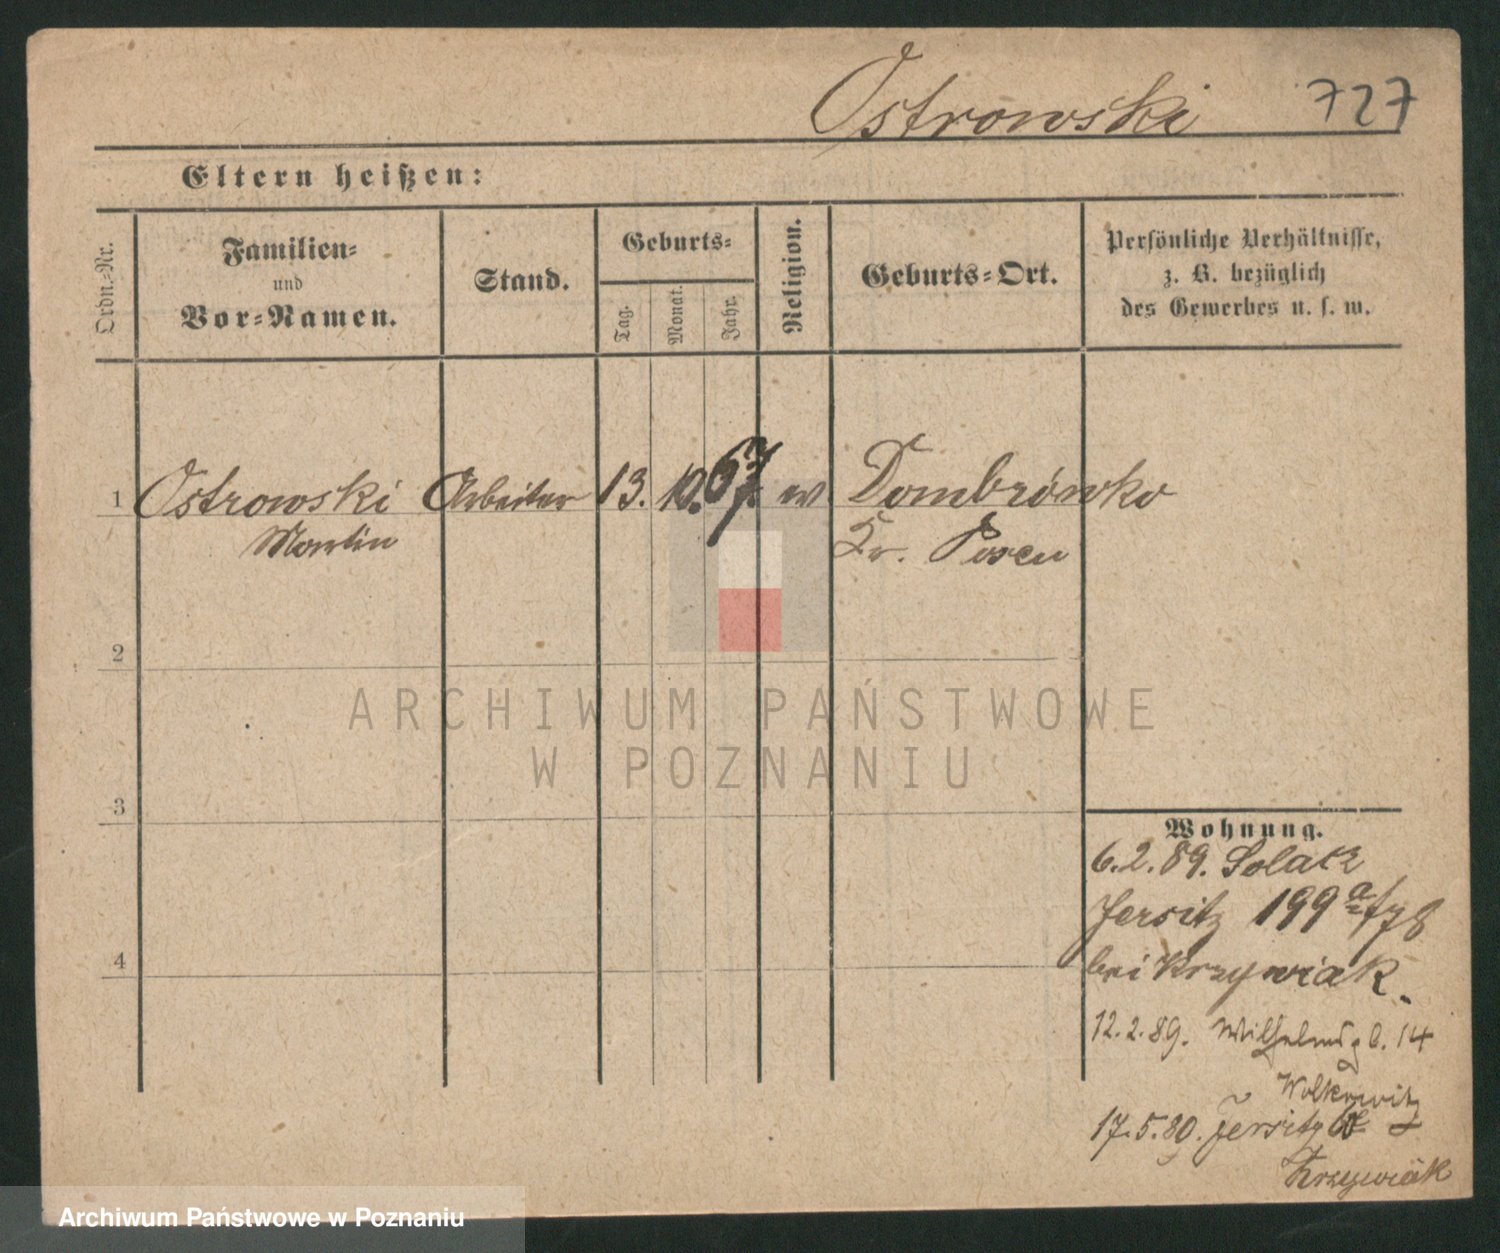 Ostrowski 727
Eltern heißen:
Ordn.-Nr.
Familien-
und
Vor-Namen.
Stand.
Geburts-
Tag.
Monat.
Jahr.
Religion.
Geburts-Ort.
Persönliche Verhältnisse,
z. B. bezüglich
des Gewerbes u. s. w.
1 Ostrowski Arbeiter 13. 10. 67. Dombrówko
Martin Kr. Posen
2
3
4
ARCHIWUM PAŃSTWOWE
W POZNANIU
Wohnung.
6.2.89. Solacz
Jersitz 199a
bei Krzywiak.
12.2.89. 14
Wolkowitz
17.5.80. Jersitz
Krzywiak
Archiwum Państwowe w Poznaniu